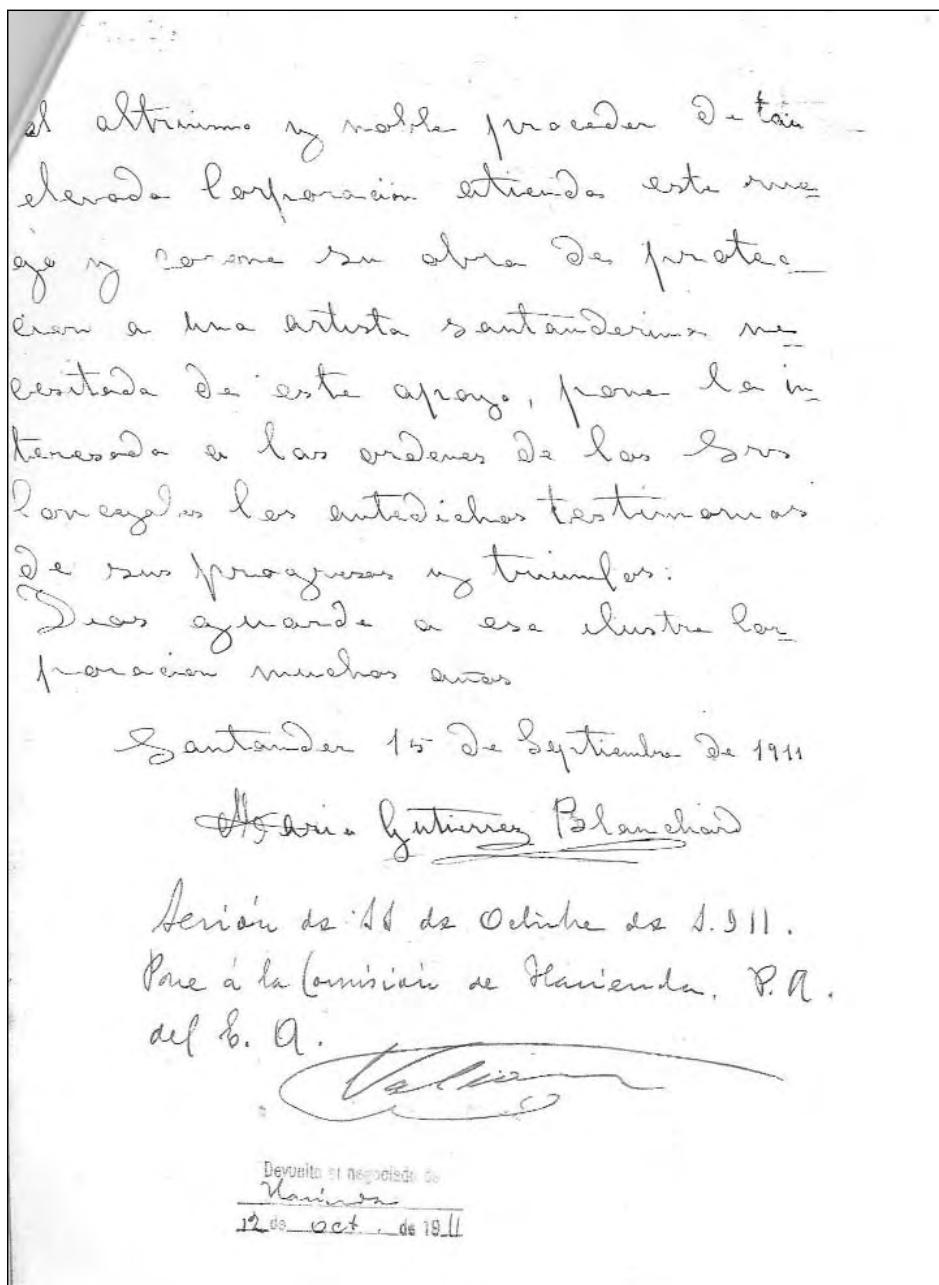 el altruismo y noble proceder de tan
elevada Corporación atienda este rue
go y corone su obra de protec
cion a una artista santanderina ne
cesitada de este apoyo, pone la in
teresada a las ordenes de los Sres
Concejales los antedichos testimonios
de sus progresos y triunfos:
Dios guarde a esa ilustre Cor
poracion muchos años
Santander 15 de Septiembre de 1911
Maria Gutierrez Blanchard
Sesión de 11 de Octubre de 1.911.
Pase á la Comisión de Hacienda. P. A.
del E. A.
Devuelto al negociado de
Hacienda
12 de oct. de 1911